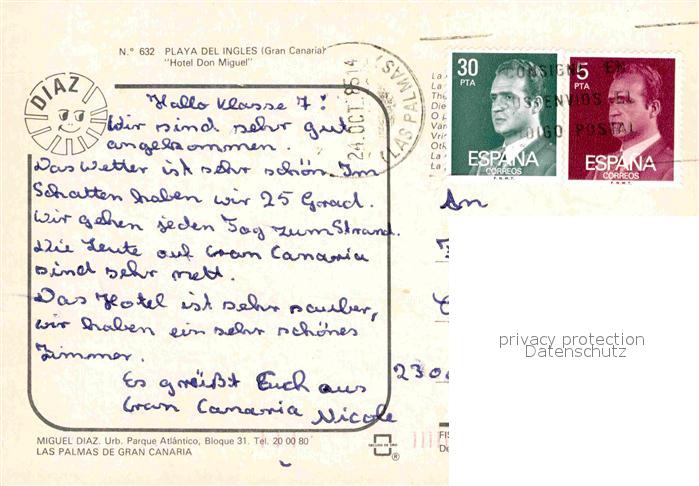 N.° 632 PLAYA DEL INGLES (Gran Canaria)
"Hotel Don Miguel"
DIAZ
Hallo Klasse 7!
Wir sind sehr gut
angekommen.
Das Wetter ist sehr schön. Im
Schatten haben wir 25 Grad.
Wir gehen jeden Tag zum Strand.
Die Leute auf Gran Canaria
sind sehr nett.
Das Hotel ist sehr sauber,
wir haben ein sehr schönes
Zimmer.
Es grüßt Euch aus
Gran Canaria Nicole
MIGUEL DIAZ. Urb. Parque Atlántico, Bloque 31. Tel. 20 00 80
LAS PALMAS DE GRAN CANARIA
®
24.OCT.85 14
(LAS PALMAS)
CONSIGNE EN
SUS ENVIOS EL
CODIGO POSTAL
30
PTA
ESPAÑA
CORREOS
F.N.M.T.
5
PTA
ESPAÑA
CORREOS
F.N.M.T.
An
230
privacy protection
Datenschutz